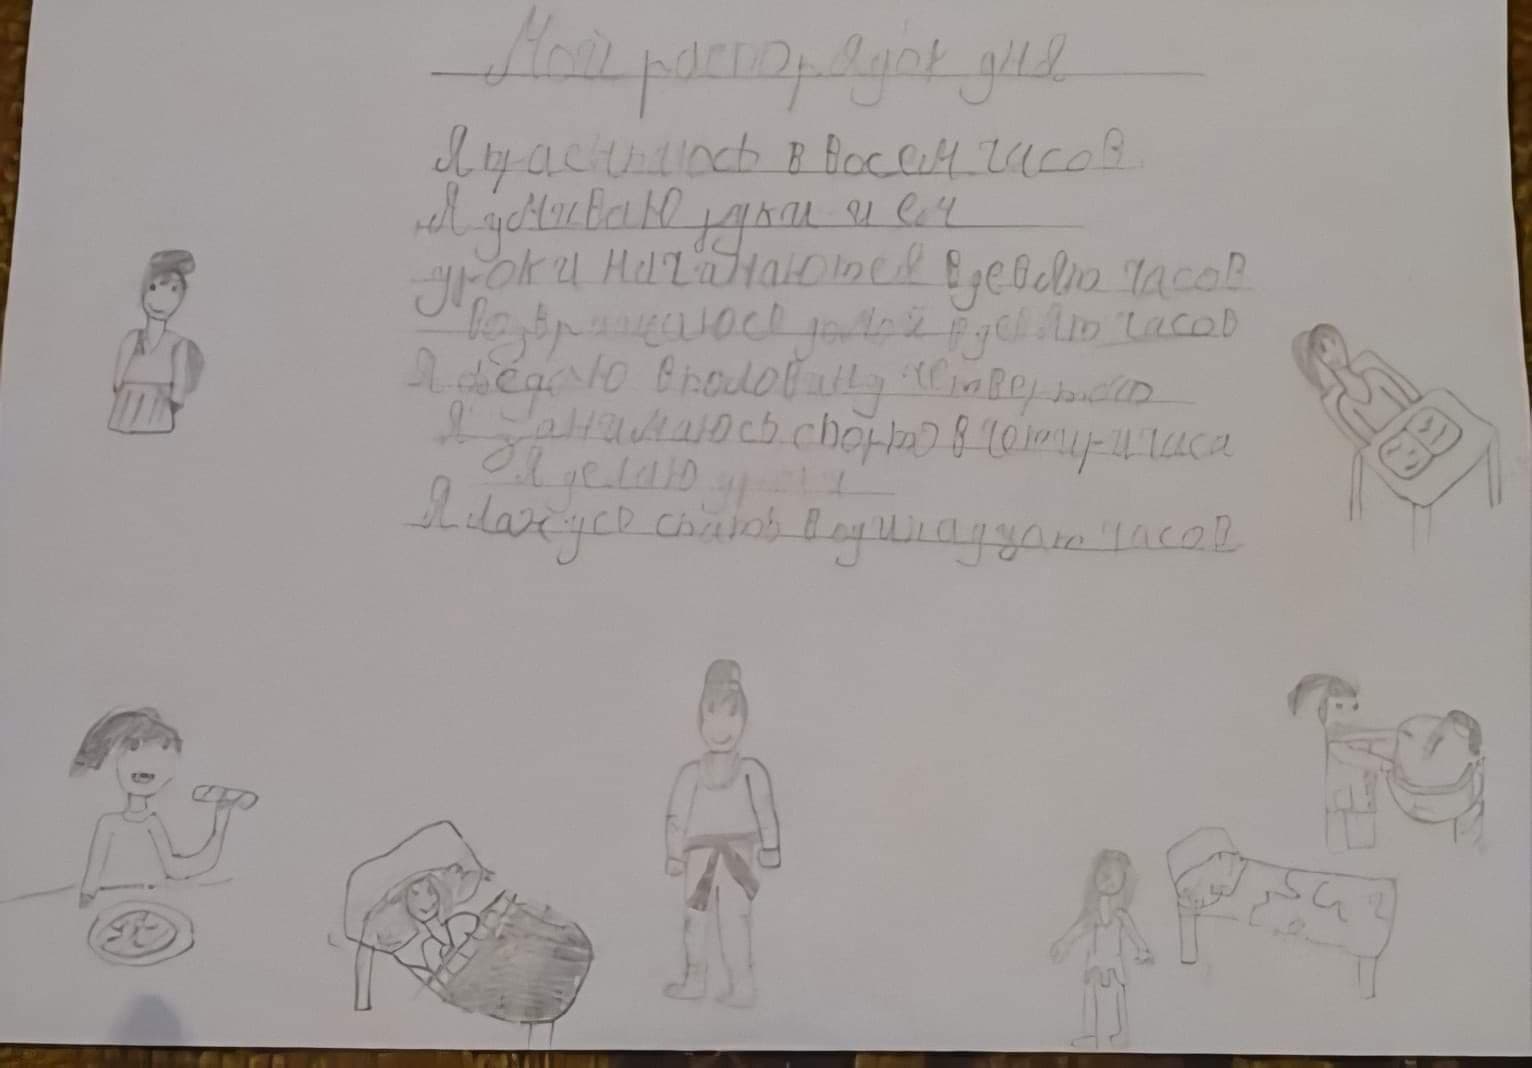 Мой распорядок дня
Я прасыпаюсь в восем часов
Я умываю руки и ем
уроки начанаются в девять часов
Возвращаюсь домой в десять часов
Я обедаю в половину четвертого
Я занимаюсь спорто в четыри часа
Я делаю уроки
Я лажусь спать в одинадцать часов